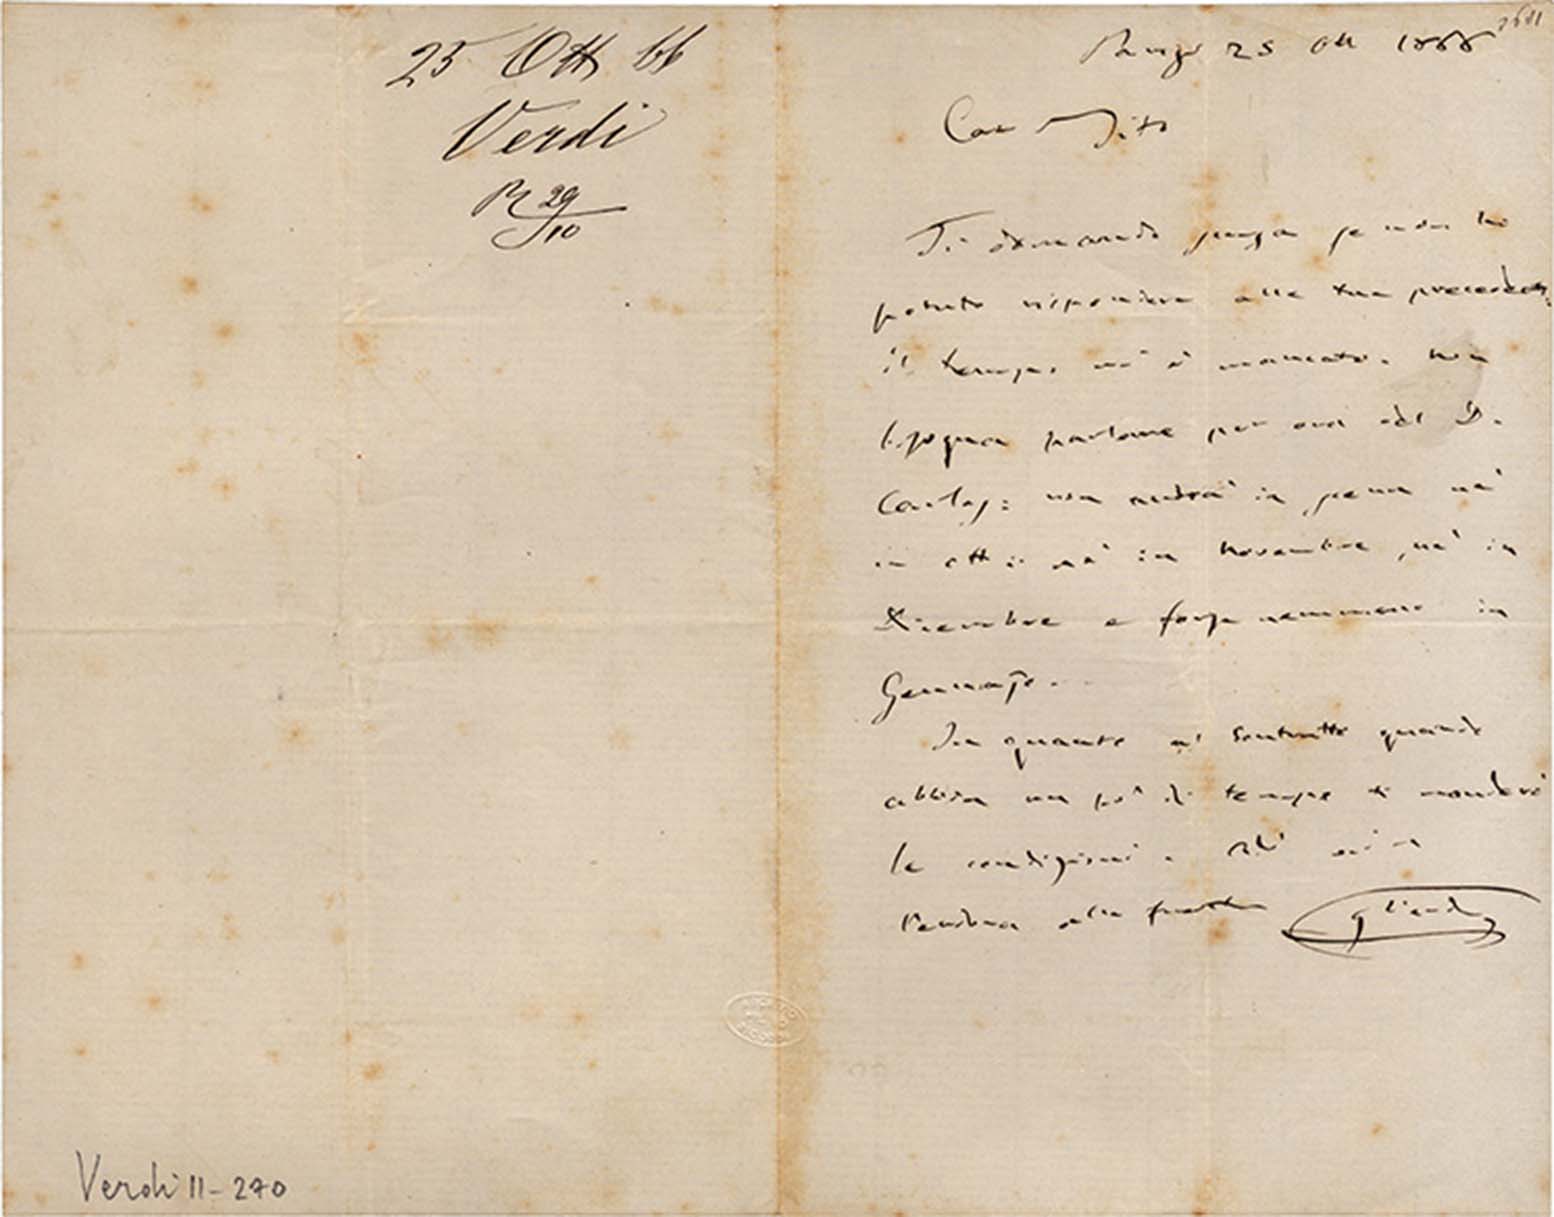 25 Ott 66
Verdi
R 29
/10
Verdi II - 270
Parigi 25 Ott 1866
Car Tito
Ti domando scusa se non ho
potuto rispondere alla tua precedente
il tempo m'è mancato. Non
bisogna parlare per ora del D.
Carlos: non andrà in scena nè
in ott: nè in Novembre, nè in
Dicembre e forse nemmeno in
Gennajo..
In quanto al contratto quando
abbia un po' di tempo ti manderò
le condizioni.
alla fretta
GVerdi